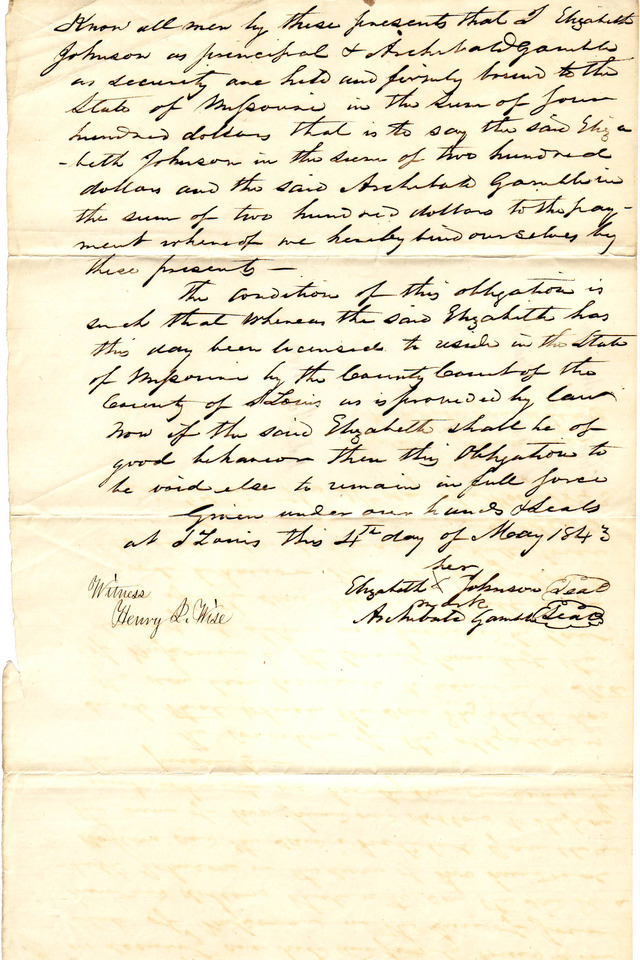 Know all men by these presents that I Elizabeth
Johnson as principal & Archibald Gamble
as security are held and firmly bound to the
State of Missouri in the sum of four
hundred dollars that is to say the said Eliza
-beth Johnson in the sum of two hundred
dollars and the said Archibald Gamble in
the sum of two hundred dollars to the pay-
ment whereof we hereby bind ourselves by
these presents —
The condition of this obligation is
such that Whereas the said Elizabeth has
this day been licensed to reside in the State
of Missouri by the County Court of the
County of St Louis as is provided by law
Now if the said Elizabeth shall be of
good behavior then this Obligation to
be void else to remain in full force
Given under our hands & Seals
at St Louis this 4th day of May 1843
her
Elizabeth X Johnson Seal
mark
Archibald Gamble Seal
Witness
Henry L. Wise